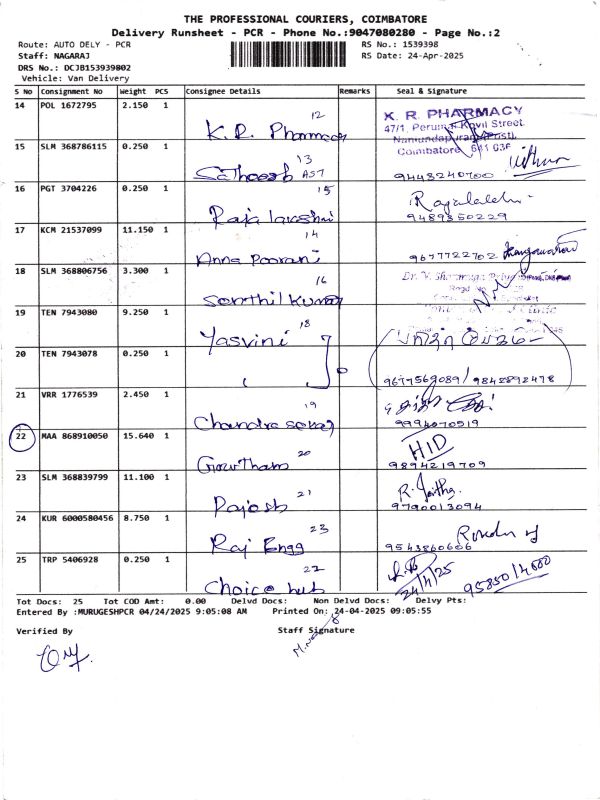 THE PROFESSIONAL COURIERS, COIMBATORE
Delivery Runsheet - PCR - Phone No.:9047080280 - Page No.:2
Route: AUTO DELY - PCR RS No.: 1539398
Staff: NAGARAJ RS Date: 24-Apr-2025
DRS No.: DCJB153939802
Vehicle: Van Delivery
S No Consignment No Weight PCS Consignee Details Remarks Seal & Signature
14 POL 1672795 2.150 1 12 K.R. Pharmacy K. R. PHARMACY
47/1, Perumal Kovil Street
Coimbatore 641 036
15 SLM 368786115 0.250 1 13 Satheesh AST 9443240700
16 PGT 3704226 0.250 1 15 Raja lakshmi Rajalakshmi 9489350229
17 KCM 21537099 11.150 1 14 Anna Poorani 9677722702
18 SLM 368806756 3.300 1 16 Senthil Kumar
19 TEN 7943080 9.250 1 18 Yasvini
20 TEN 7943078 0.250 1 9677563089/9842892478
21 VRR 1776539 2.450 1 19 Chandra sekar 9994070519
22 MAA 868910050 15.640 1 20 Gowtham HID 9894219709
23 SLM 368839799 11.100 1 21 Rajesh 9790013094
24 KUR 6000580456 8.750 1 23 Raj Engg 9543860606
25 TRP 5406928 0.250 1 22 Choice hub 24/4/25
Tot Docs: 25 Tot COD Amt: 0.00 Delvd Docs: Non Delvd Docs: Delvy Pts:
Entered By :MURUGESHPCR 04/24/2025 9:05:08 AM Printed On: 24-04-2025 09:05:55
Verified By Staff Signature